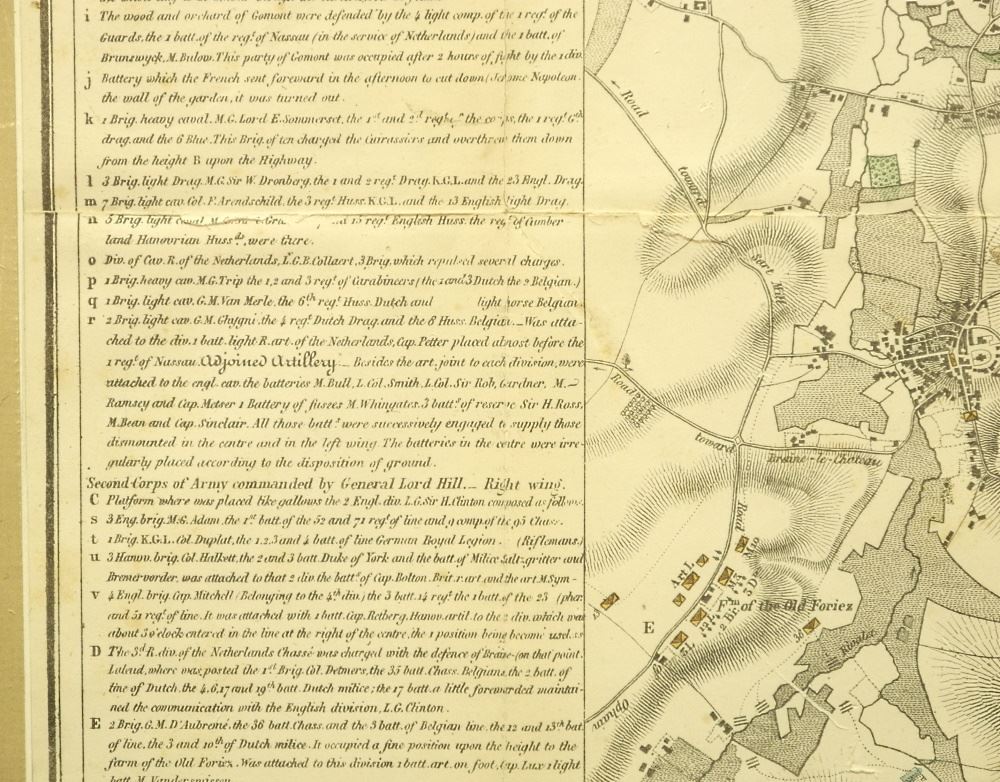 i The wood and orchard of Gomont were defended by the 4 light comp. of the 1 reg.t of the
Guards, the 1 batt. of the reg.t of Nassau (in the service of Netherlands) and the 1 batt. of
Brunswyck, M. Bulow. This party of Gomont was occupied after 2 hours of fight by the 1 div.
j Battery which the French sent foreward in the afternoon to cut down (Jerome Napoleon.
the wall of the garden, it was turned out.
k 1 Brig. heavy caval. M.G. Lord E. Sommerset, the 1st and 2d the 1 reg.t G.th
drag. and the 6 Blue. This Brig. of ten charged the Cuirassiers and overthrew them down
from the height B upon the Highway.
l 3 Brig. light Drag. M.G. Sir W. Dronberg, the 1 and 2 reg.t Drag. K.G.L. and the 23 Engl. Drag.
m 7 Brig. light cav. Col. F. Arendschild, the 3 reg.t Huss. K.G.L. and the 13 English light Drag.
n 5 Brig. light 15 reg.t English Huss. the reg.t of Cumber-
land Hanovrian Huss.ds were there.
o Div. of Cav. R. of the Netherlands, L.G.B. Collaert, 3 Brig. which repulsed several charges.
p 1 Brig. heavy cav. M.G. Trip the 1, 2 and 3 reg.t of Carabineers (the 1 and 3 Dutch the 2 Belgian.)
q 1 Brig. light cav. G.M. Van Merle, the 6th reg.t Huss. Dutch and light horse Belgian
r 2 Brig. light cav. G.M. Ghigni, the 4 reg.t Dutch Drag. and the 8 Huss. Belgian. _ Was atta-
ched to the div. 1 batt. light R. art. of the Netherlands, Cap. Petter placed almost before the
1 reg.t of Nassau. Adjoined Artillery _ Besides the art. joint to each division, were
attached to the engl. cav. the batteries M. Bull, L. Col. Smith, L. Col. Sir Rob. Gardner, M. _
Ramsey and Cap. Metser 1 Battery of fusees M. Whingates. 3 batt.s of reserve Sir H. Ross,
M. Bean and Cap. Sinclair. All those batt.s were successively engaged to supply those
dismounted in the centre and in the left wing. The batteries in the centre were irre-
gularly placed according to the disposition of ground.
Second Corps of Army commanded by General Lord Hill. _ Right wing.
C Platform where was placed like gallows the 2 Engl. div. L.G. Sir H. Clinton composed as follows.
s 3 Eng. brig. M.G. Adam, the 1st batt. of the 52 and 71 reg.t of line and 9 comp. of the 95 Chass.
t 1 Brig. K.G.L. Col. Duplat, the 1. 2. 3 and 4 batt. of line German Royal Legion. (Riflemans.)
u 3 Hanov. brig. Col. Halkett, the 2 and 3 batt. Duke of York and the batt. of Milice Saltz-gritter and
Bremervorder, was attached to that 2 div. the batt.s of Cap. Bolton. Brit. r. art. and the art. M. Sym-
v 4 Engl. brig. Cap. Mitchell (Belonging to the 4th div.) the 3 batt. 14 reg.t the 1 batt. of the 23 (pher.
and 51 reg.t of line. It was attached with 1 batt. Cap. Retberg, Hanov. artil. to the 2 div. which was
about 3 o'clock entered in the line at the right of the centre, the 1 position being become usel.ss
D The 3d R. div. of the Netherlands Chassé was charged with the defence of Braine- (on that point.
Laleud, where was posted the 1st Brig. Col. Detmers, the 35 batt. Chass. Belgians, the 2 batt. of
line of Dutch, the 4, 6, 17 and 19th batt. Dutch milice; the 17 batt. a little forewarded maintai-
ned the communication with the English division, L.G. Clinton.
E 2 Brig. G.M. D'Aubremé, the 36 batt. Chass. and the 3 batt. of Belgian line, the 12 and 13th bat.
of line, the 3 and 10th of Dutch milice. It occupied a fine position upon the height to the
farm of the Old Foriez. Was attached to this division 1 batt. art. on foot, Cap. Lux 1 light
batt. M. Vandersmissen
Road
toward
Sart Mill
Road
toward
Braine-le-Chateau
Road
Artil.
Fm of the Old Foriez
E
19
36
Ophain